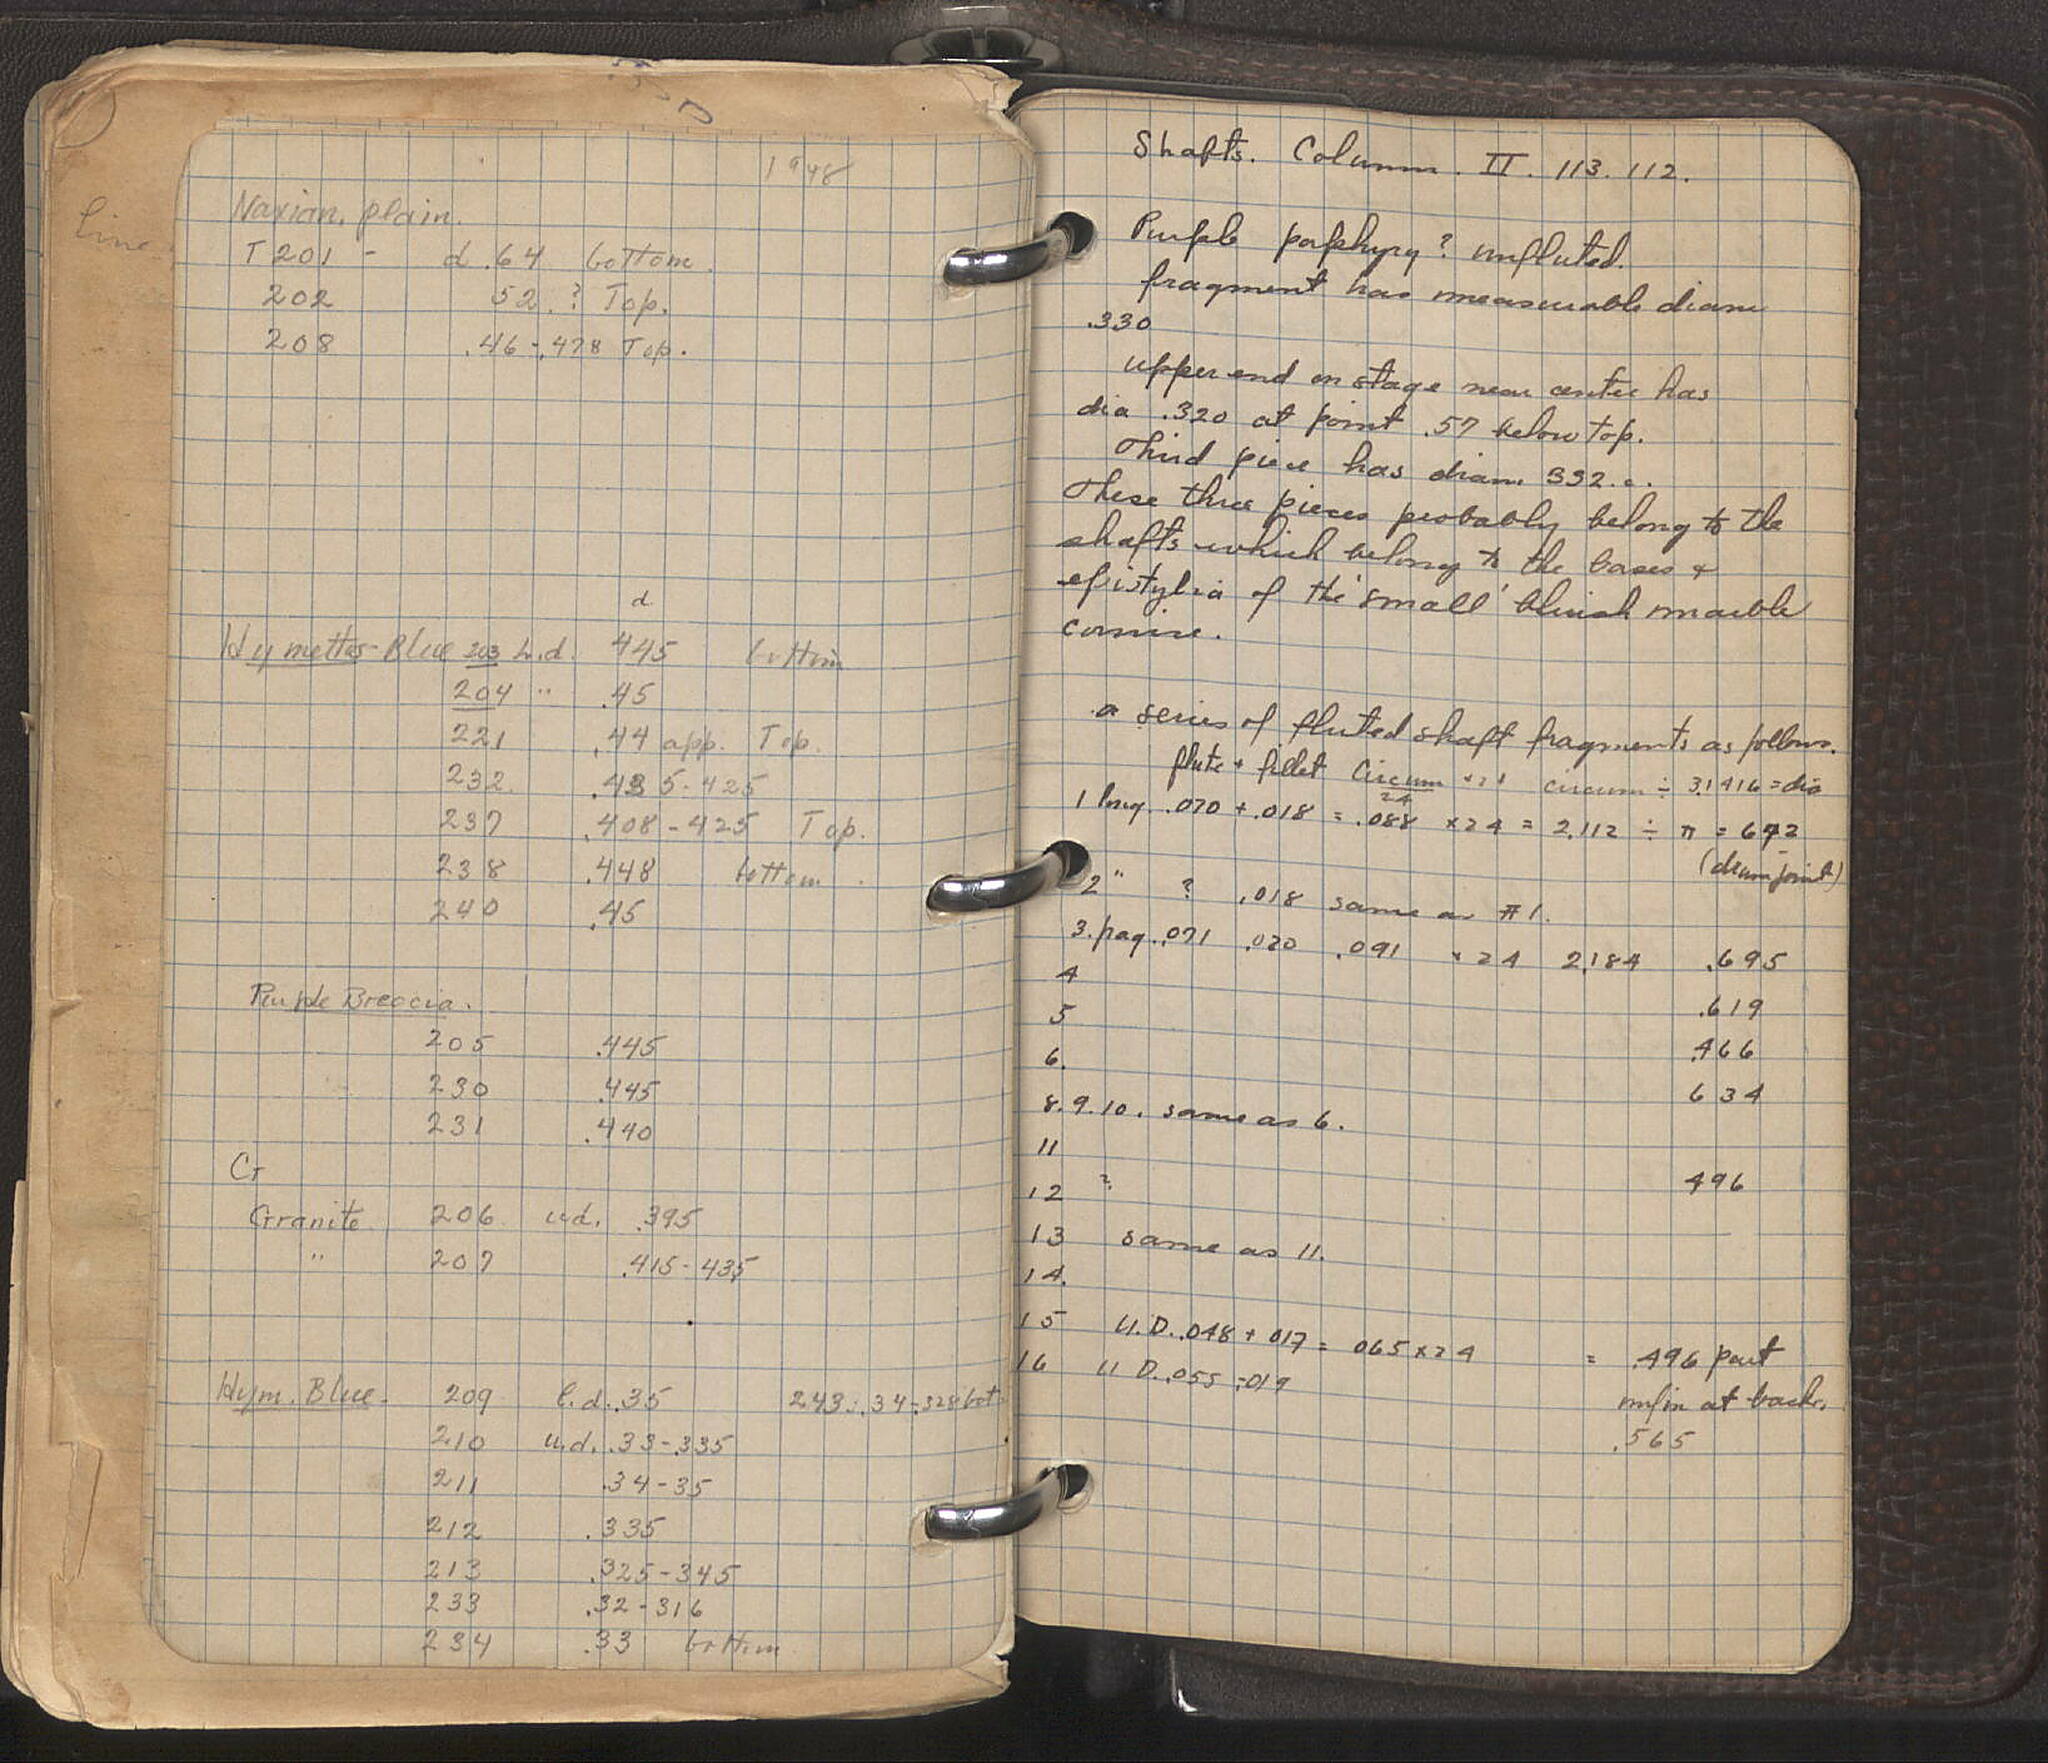 1948
Line
Naxian, plain.
T 201 - d .64 bottom.
202 52.? Top.
208 .46-.478 Top.
d
Hymettos-Blue 203 l.d. 445 bottom
204 " .45
221 .44 app. Top.
232. .435-425
237 .408-425 Top.
238 .448 bottom.
240 .45
Purple Breccia.
205 .445
230 .445
231 .440
Gr
Granite 206 u.d. .395
" 207 .415-435
Hym. Blue. 209 l.d. .35 243: .34-.328 bot
210 u.d. .33-.335
211 .34-35
212 .335
213 .325-345
233 .32-316
234 .33 bottom
Shafts. Column. II. 113. 112.
Purple porphyry? unfluted.
fragment has measurable diam
.330
upper end on stage near center has
dia .320 at point .57 below top.
Third piece has diam 332.c.
These three pieces probably belong to the
shafts which belong to the bases +
epistylia of the 'small' bluish marble
cornice.
a series of fluted shaft fragments as follows.
flute + fillet circum/24 circum ÷ 3.1416 = dia
1 long .070 + .018 = .088 x24 = 2.112 ÷ π = 672
(drum joint)
2 " ? .018 same as #1.
3. frag. .071 .020 .091 x 24 2.184 .695
4 .619
5 .466
6. 634
8. 9. 10. same as 6.
11 496
12 ?
13 same as 11.
14.
15 U.D. .048 + 017 = 065 x 24 = .496 part
unfin at back.
16 U D. .055 .019 .565